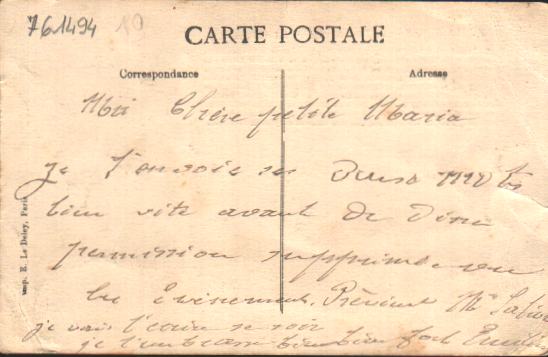 761494 10
CARTE POSTALE
Correspondance Adresse
Ma Chère petite Maria
je t'envoie ses deux mots
bien vite avant de diner
permission supprimée vu
les Evènements. Prévient Mr
je vais t'écrire se soir
je t'embrasse bien bien fort
Imp. E. Le Deley, Paris